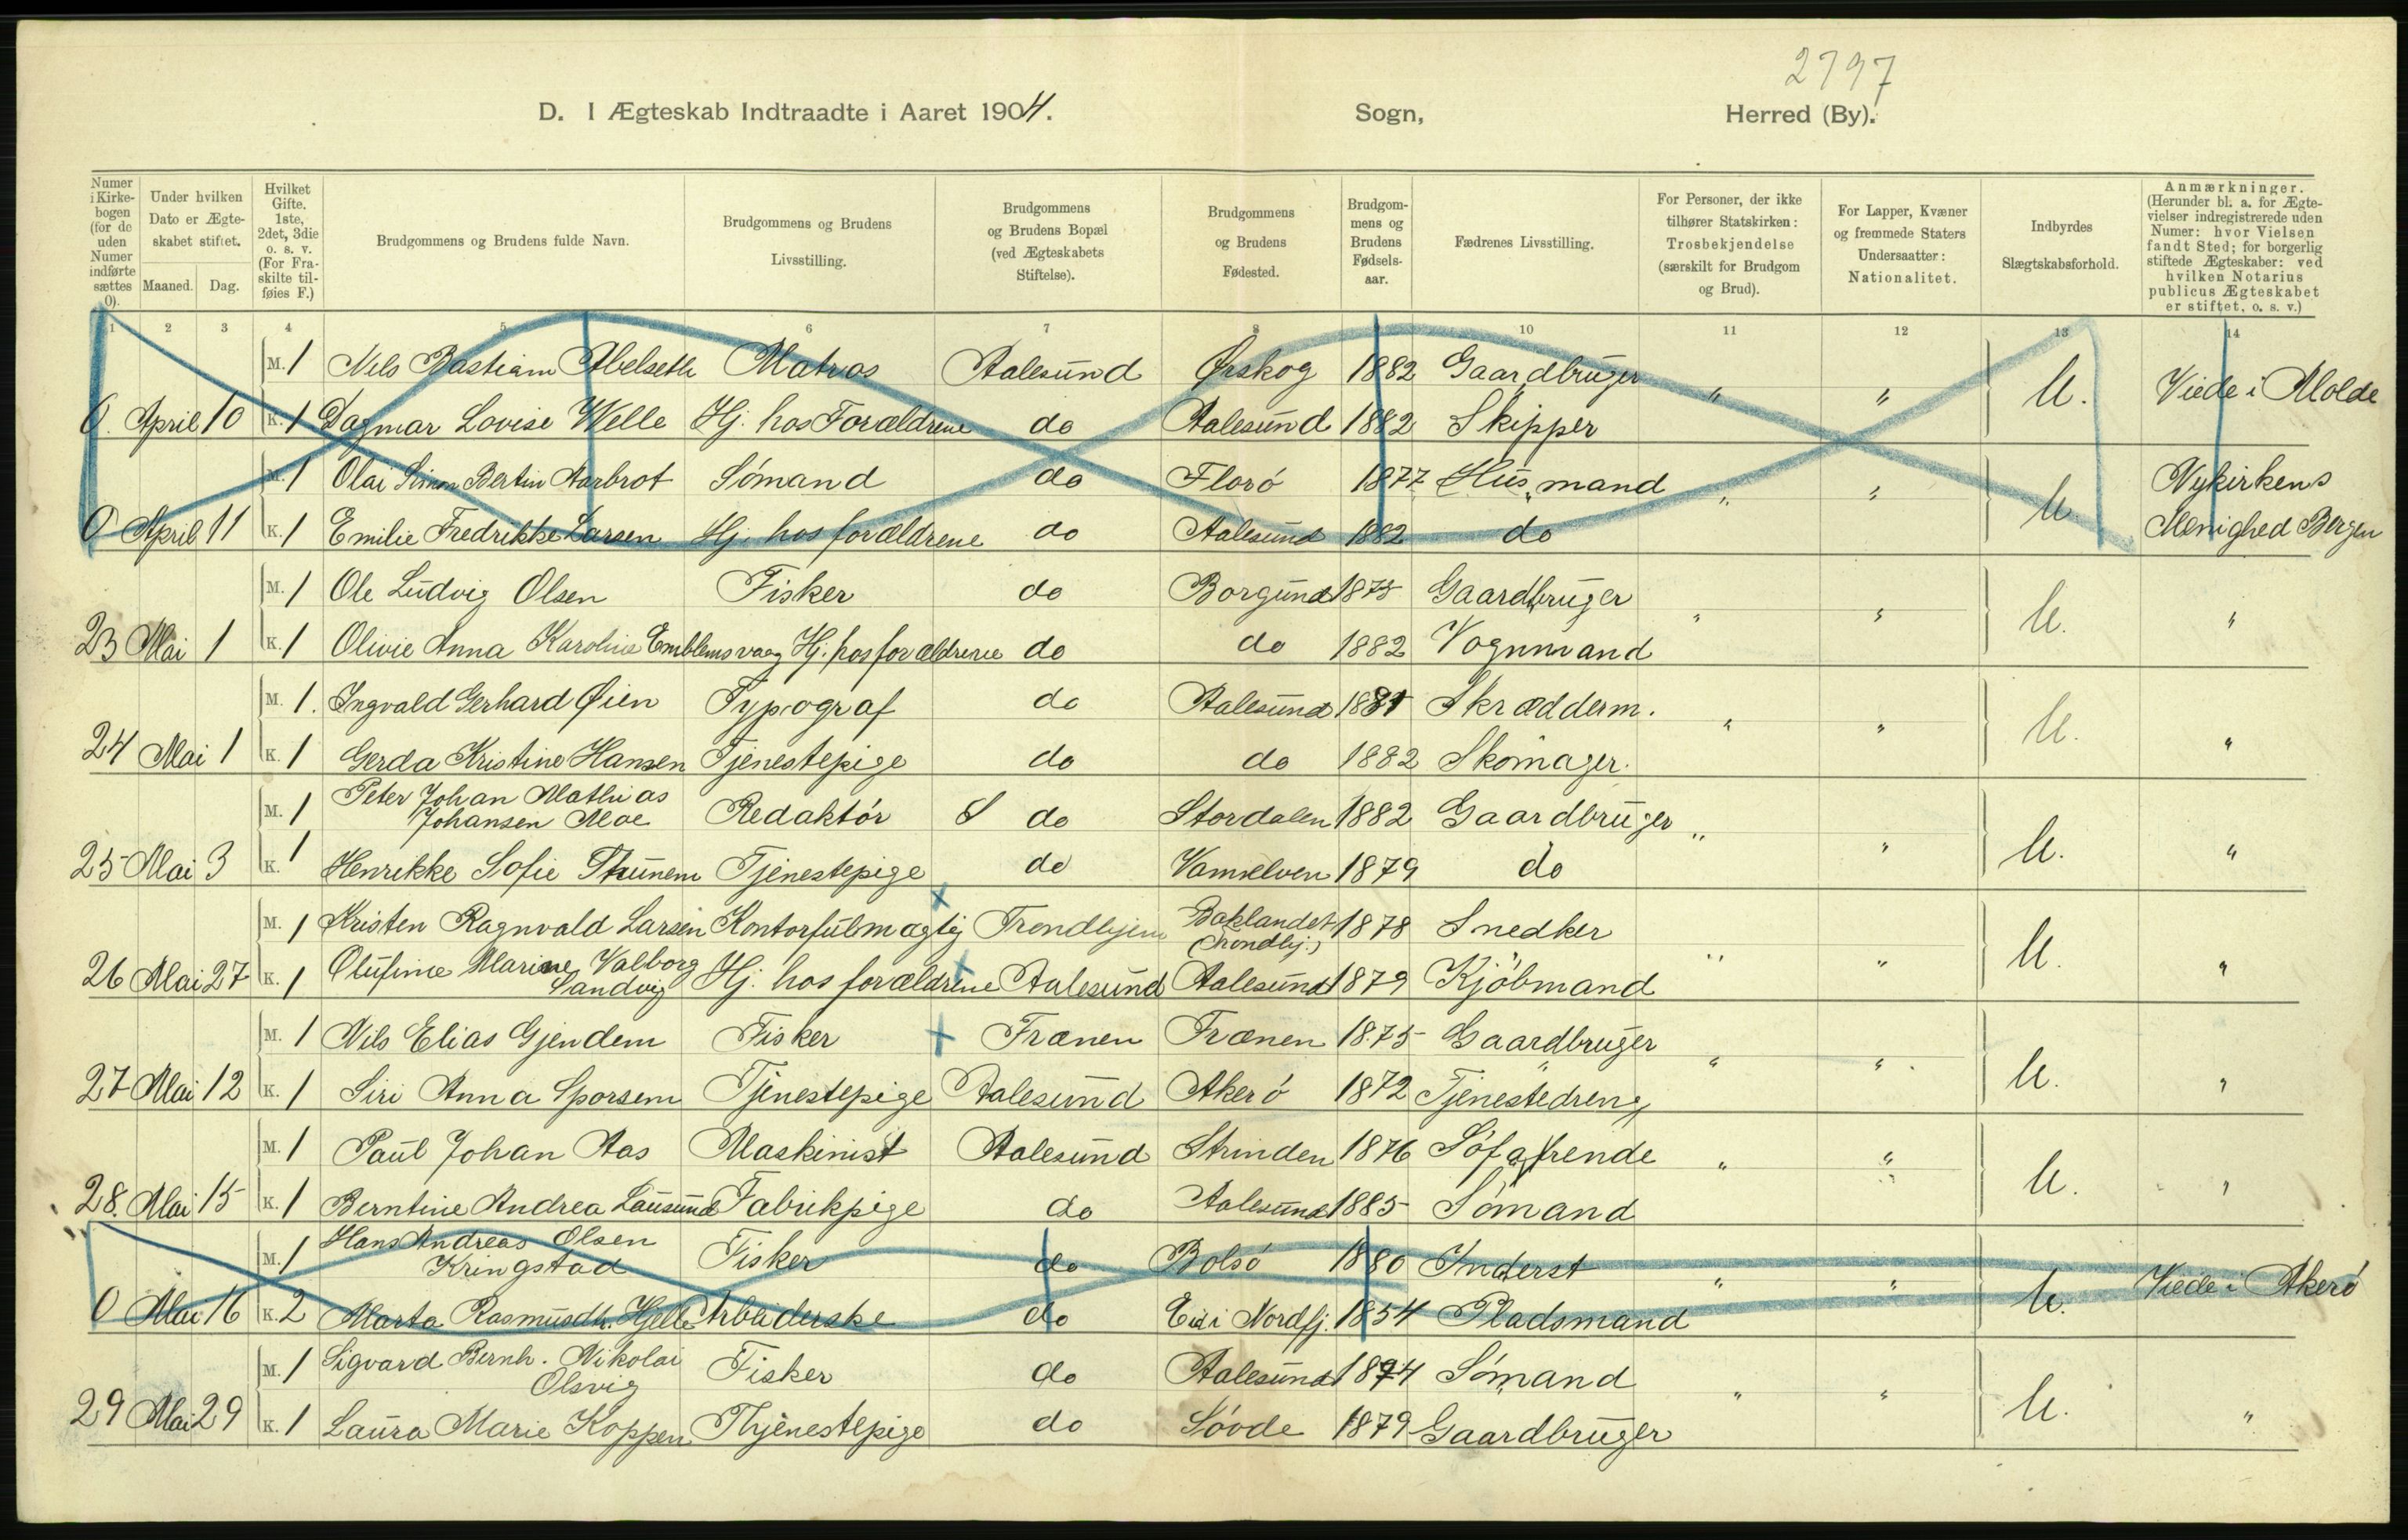 2797
D. I Ægteskab Indtraadte i Aaret 1904. Sogn, Herred (By).
Numer i Kirkebogen (for de uden Numer indførte sættes 0).
Under hvilken Dato er Ægteskabet stiftet.
Maaned. Dag.
Hvilket Gifte. 1ste, 2det, 3die o. s. v. (For Fraskilte tilføies F.)
Brudgommens og Brudens fulde Navn.
Brudgommens og Brudens Livsstilling.
Brudgommens og Brudens Bopæl (ved Ægteskabets Stiftelse).
Brudgommens og Brudens Fødested.
Brudgommens og Brudens Fødselsaar.
Fædrenes Livsstilling.
For Personer, der ikke tilhører Statskirken: Trosbekjendelse (særskilt for Brudgom og Brud).
For Lapper, Kvæner og fremmede Staters Undersaatter: Nationalitet.
Indbyrdes Slægtskabsforhold.
Anmærkninger. (Herunder bl. a. for Ægtevielser indregistrerede uden Numer: hvor Vielsen fandt Sted; for borgerlig stiftede Ægteskaber: ved hvilken Notarius publicus Ægteskabet er stiftet, o. s. v.)
1 2 3 4 5 6 7 8 10 11 12 13 14
M. 1 Nels Bastian Abelseth Matros Aalesund Ørskog 1882 Gaardbruger " " U. Viede i Molde
0. April 10 K. 1 Dagmar Lovise Welle Hj. hos Forældrene do Aalesund 1882 Skipper
M. 1 Olai Simon Bertin Aarbrot Sømand do Florø 1877 Husmand " " U Nykirkens
0 April 11 K. 1 Emilie Fredrikke Larsen Hj. hos forældrene do Aalesund 1882 do Menighed Bergen
M. 1 Ole Ludvig Olsen Fisker do Borgund 1875 Gaardbruger " " U. "
23 Mai 1 K. 1 Olivie Anna Karoline Emblemsvaag Hj. hos forældrene do do 1882 Vognmand
M. 1. Ingvald Gerhard Øien Typograf do Aalesund 1881 Skrædderm. " " U. "
24 Mai 1 K. 1 Gerda Kristine Hansen Tjenestepige do do 1882 Skomager.
M. 1 Peter Johan Mathias
Johansen Moe Redaktør do Stordalen 1882 Gaardbruger " " U. "
25 Mai 3 K. 1 Henrikke Sofie Thunem Tjenestepige do Vanelven 1879 do
M. 1 Kristen Ragnvald Larsen Kontorfulmægtig Trondhjem Baklandet
(Trondhj.) 1878 Snedker " " U. "
26 Mai 27 K. 1 Olufine Marine Valborg
Sandvig Hj. hos forældrene Aalesund Aalesund 1879 Kjøbmand
M. 1 Nils Elias Gjendem Fisker Frænen Frænen 1875 Gaardbruger " " U. "
27 Mai 12 K. 1 Siri Anna Sporsem Tjenestepige Aalesund Akerø 1872 Tjenestedreng
M. 1 Paul Johan Aas Maskinist Aalesund Strinden 1876 Søfarende " " U. "
28. Mai 15 K. 1 Berntine Andrea Lausund Fabrikpige do Aalesund 1885 Sømand
M. 1 Hans Andreas Olsen
Kringstad Fisker do Bolsø 1880 Inderst " " U. Viede i Akerø
0 Mai 16 K. 2 Marta Rasmusdtr. Hjelle Arbeiderske do Eid i Nordfj. 1854 Pladsmand
M. 1 Sigvard Bernh. Nikolai
Olsvig Fisker do Aalesund 1874 Sømand " " U. "
29 Mai 29 K. 1 Laura Marie Koppen Thjenestepige do Søvde 1879 Gaardbruger